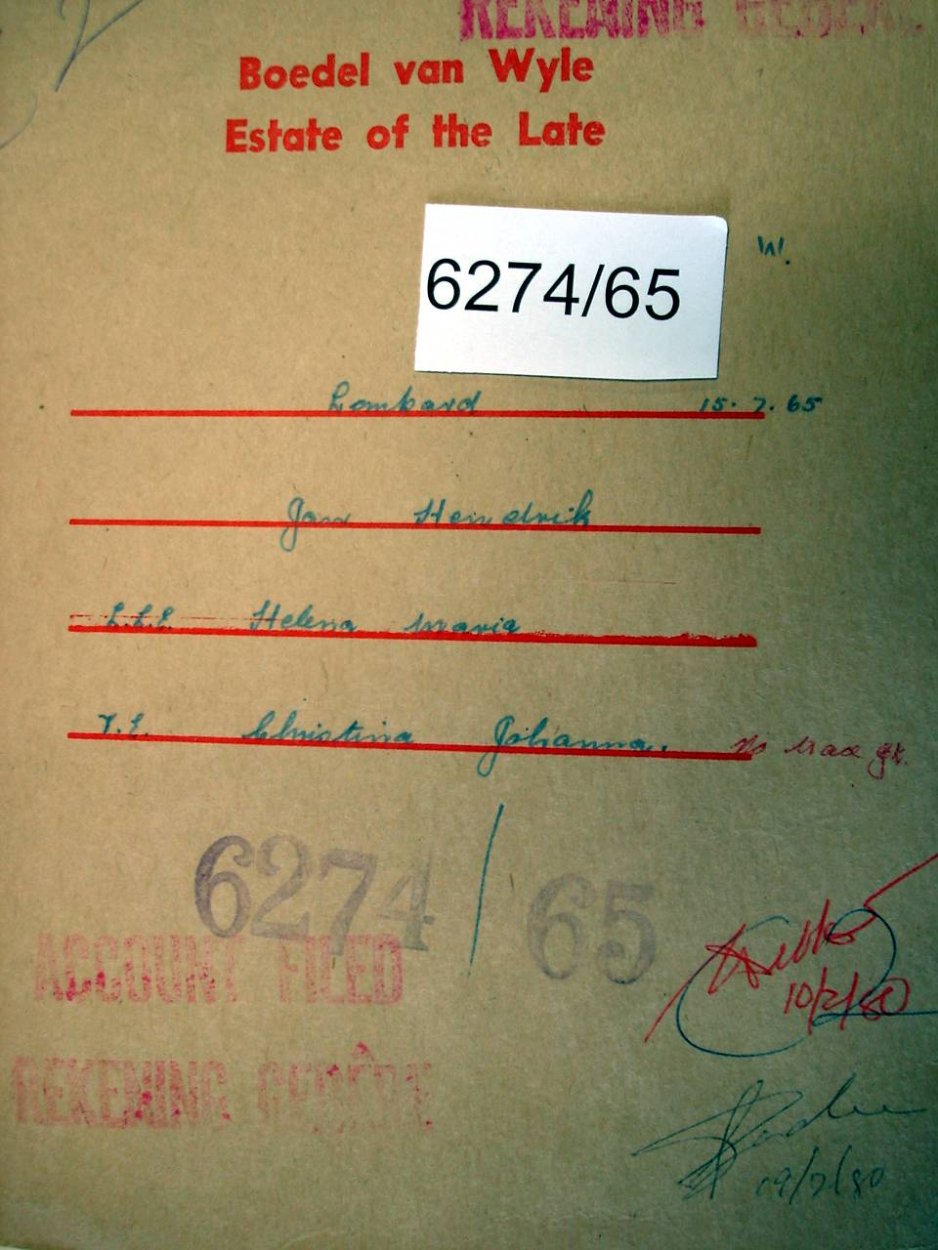 REKENING GEDEKE
Boedel van Wyle
Estate of the Late
W.
6274/65
Lombard 15.7.65
Jan Hendrik
L.L.E. Helena Maria
T.E. Christina Johanna.
6274/65
ACCOUNT FILED
10/2/80
REKENING
19/2/80